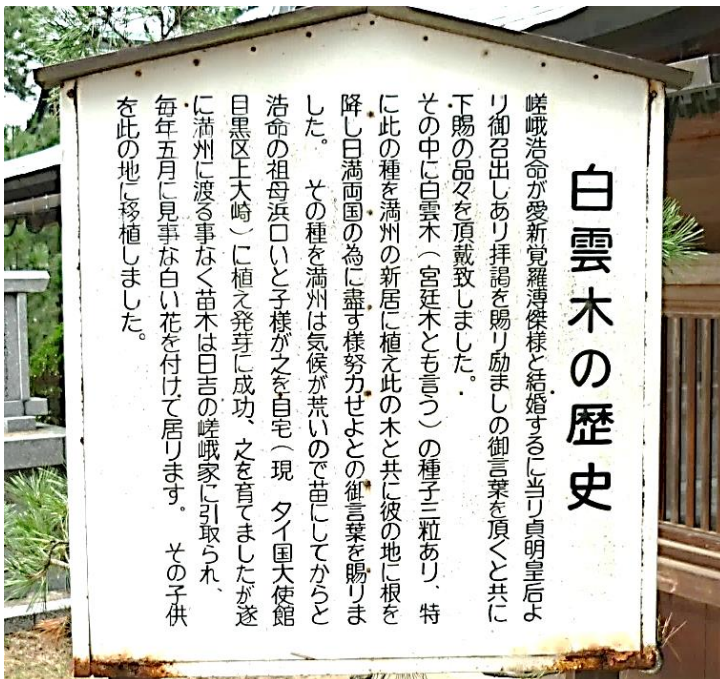 白雲木の歴史
嵯峨浩命が愛新覚羅溥傑様と結婚するに当り貞明皇后よ
り御召出しあり拝謁を賜り励ましの御言葉を頂くと共に
下賜の品々を頂戴致しました。
その中に白雲木(宮廷木とも言う)の種子三粒あり、特
に此の種を満州の新居に植え此の木と共に彼の地に根を
降し日満両国の為に盡す様努力せよとの御言葉を賜りま
した。 その種を満州は気候が荒いので苗にしてからと
浩命の祖母浜口いと子様が之を自宅(現 タイ国大使館
目黒区上大崎)に植え発芽に成功、之を育てましたが遂
に満州に渡る事なく苗木は日吉の嵯峨家に引取られ、
毎年五月に見事な白い花を付けて居ります。 その子供
を此の地に移植しました。